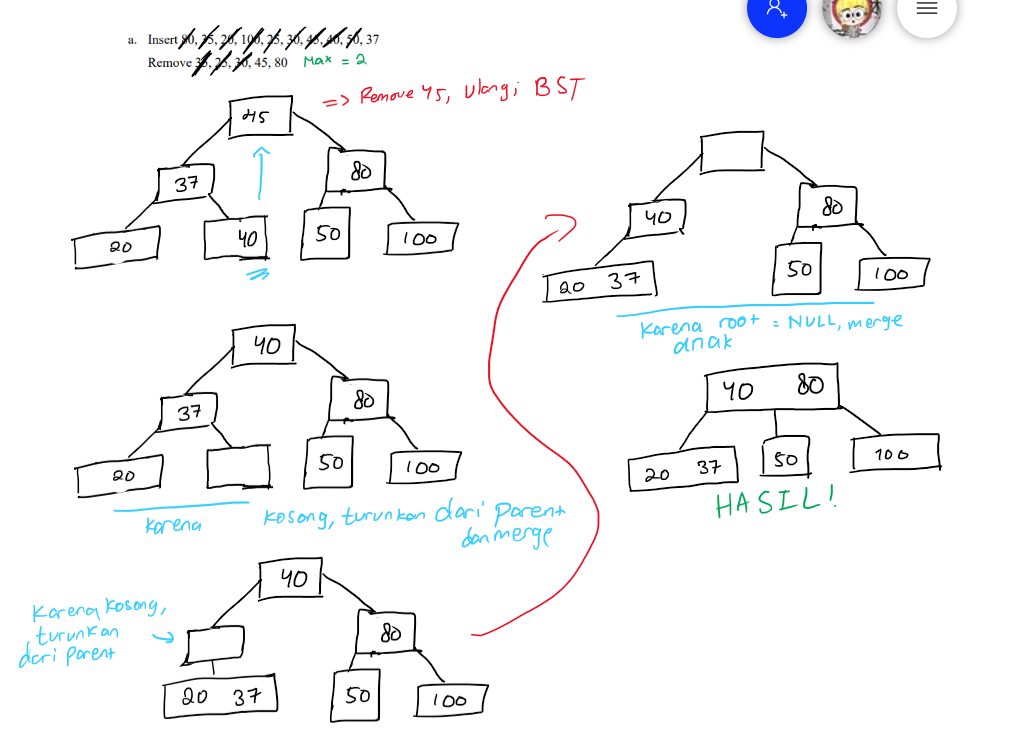 a. Insert 80, 35, 20, 100, 25, 30, 45, 40, 50, 37
Remove 35, 25, 30, 45, 80 Max = 2
=> Remove 45, Ulangi BST
45
37
80
20
40
50
100
40
37
80
20
50
100
Karena kosong, turunkan dari parent
dan merge
40
Karena kosong,
turunkan
dari parent
80
20 37
50
100
40
80
20 37
50
100
Karena root = NULL, merge
anak
40 80
20 37
50
100
HASIL!